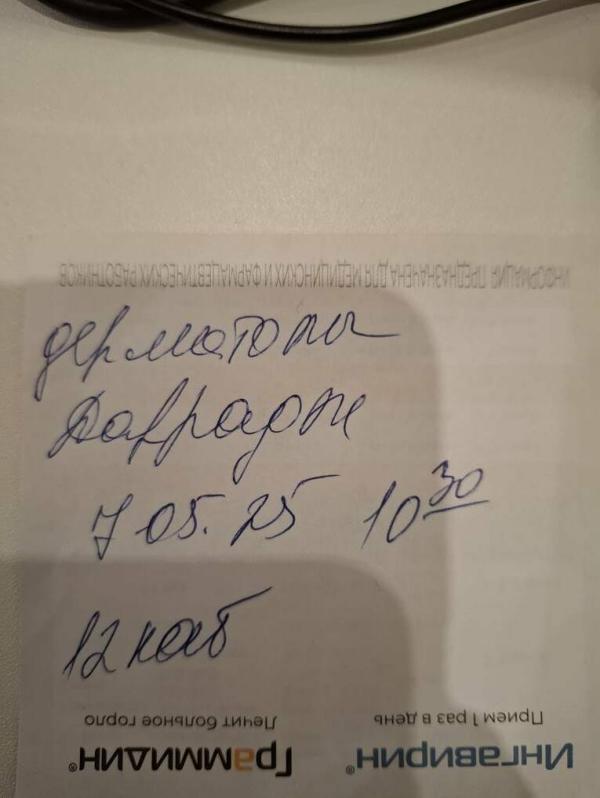 ИНФОРМАЦИЯ ПРЕДНАЗНАЧЕНА ДЛЯ МЕДИЦИНСКИХ И ФАРМАЦЕВТИЧЕСКИХ РАБОТНИКОВ
дерматолог
7 05. 25 10 30
12 каб
Ингавирин® Граммидин®
Прием 1 раз в день Лечит больное горло